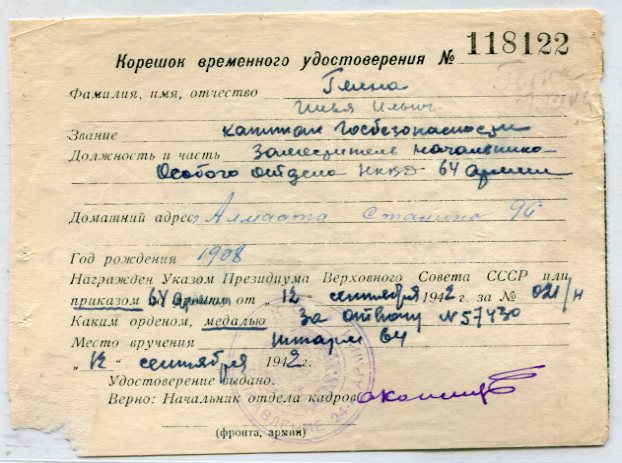 Корешок временного удостоверения № 118122
Фамилия, имя, отчество
Илья Ильич
Звание капитан Госбезопасности
Должность и часть Заместитель начальника
Особого отдела НКВД 64 армии
Домашний адрес Алмаата Сталина 96
Год рождения 1908
Награжден Указом Президиума Верховного Совета СССР или
приказом 64 армии от „12 сентября 1942 г. за № 021/н
Каким орденом, медалью За отвагу N 57430
Место вручения Штарм 64
„12 сентября 1942 г.
Удостоверение выдано.
Верно: Начальник отдела кадров
(фронта, армии)